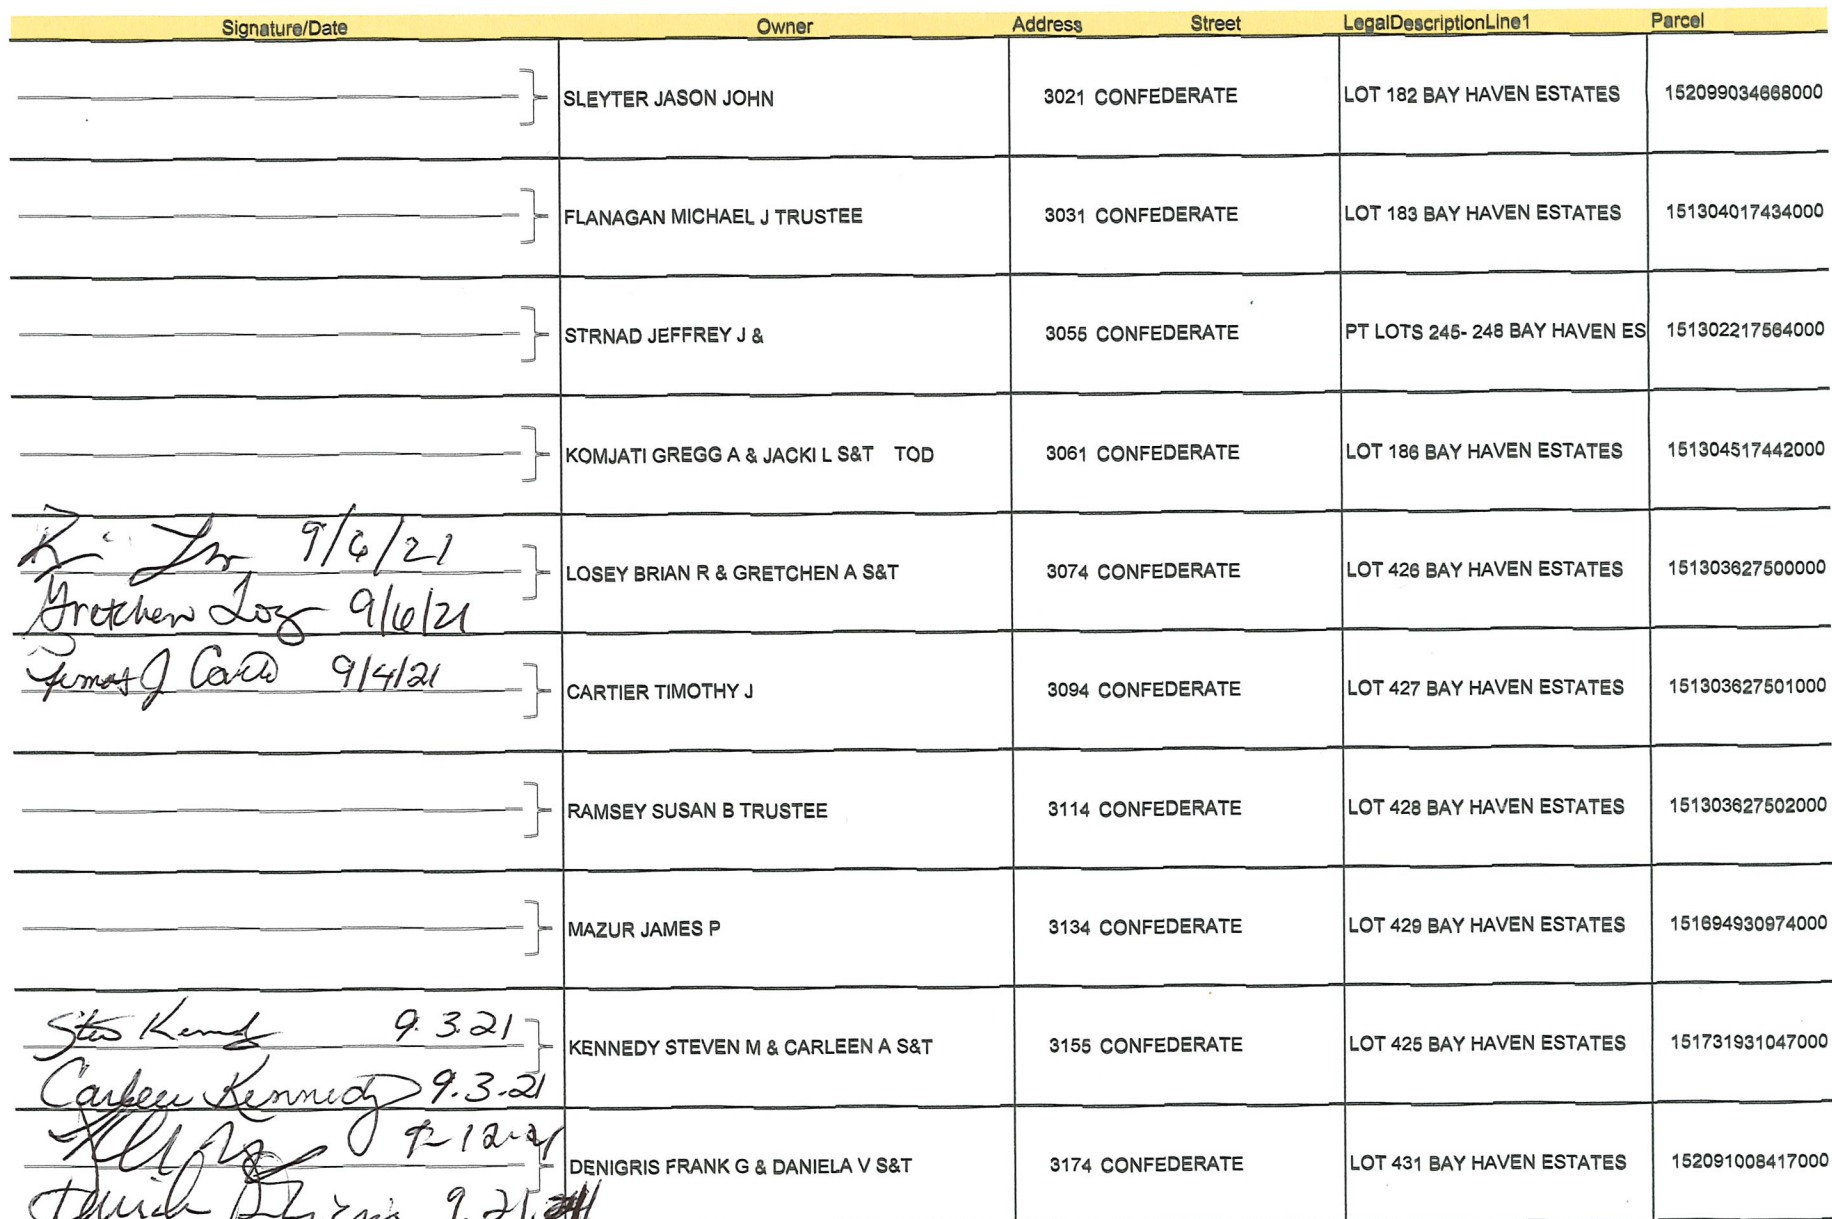 Signature/Date Owner Address Street LegalDescriptionLine1 Parcel
SLEYTER JASON JOHN 3021 CONFEDERATE LOT 182 BAY HAVEN ESTATES 152099034668000
FLANAGAN MICHAEL J TRUSTEE 3031 CONFEDERATE LOT 183 BAY HAVEN ESTATES 151304017434000
STRNAD JEFFREY J & 3055 CONFEDERATE PT LOTS 245- 248 BAY HAVEN ES 151302217564000
KOMJATI GREGG A & JACKI L S&T TOD 3061 CONFEDERATE LOT 186 BAY HAVEN ESTATES 151304517442000
9/6/21
LOSEY BRIAN R & GRETCHEN A S&T 3074 CONFEDERATE LOT 426 BAY HAVEN ESTATES 151303627500000
Gretchen 9/6/21
9/4/21
CARTIER TIMOTHY J 3094 CONFEDERATE LOT 427 BAY HAVEN ESTATES 151303627501000
RAMSEY SUSAN B TRUSTEE 3114 CONFEDERATE LOT 428 BAY HAVEN ESTATES 151303627502000
MAZUR JAMES P 3134 CONFEDERATE LOT 429 BAY HAVEN ESTATES 151694930974000
9.3.21
KENNEDY STEVEN M & CARLEEN A S&T 3155 CONFEDERATE LOT 425 BAY HAVEN ESTATES 151731931047000
Carleen Kennedy 9.3.21
9-12-21
DENIGRIS FRANK G & DANIELA V S&T 3174 CONFEDERATE LOT 431 BAY HAVEN ESTATES 152091008417000